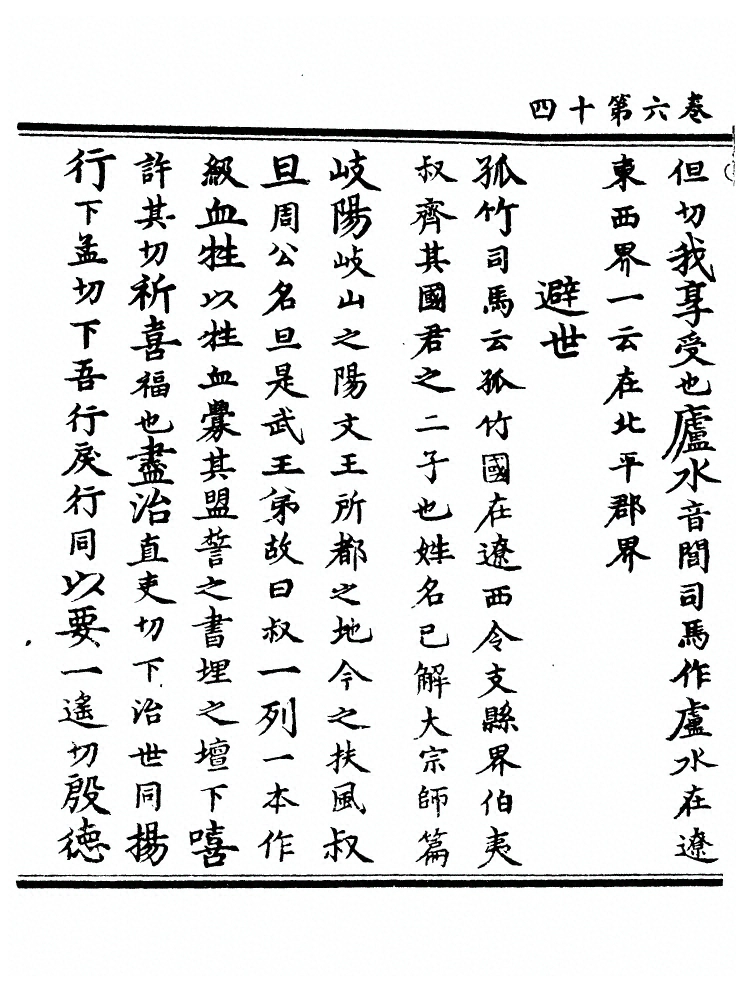 卷六第十四
但切我享受也廬水音閭司馬作盧水在遼
東西界一云在北平郡界
避世
孤竹司馬云孤竹國在遼西令支縣界伯夷
叔齊其國君之二子也姓名已解大宗師篇
岐陽岐山之陽文王所都之地今之扶風叔
旦周公名旦是武王弟故曰叔一列一本作
級血牲以牲血釁其盟誓之書埋之壇下嘻
許其切祈喜福也盡治直吏切下治世同揚
行下孟切下吾行戾行同以要一遙切殷德